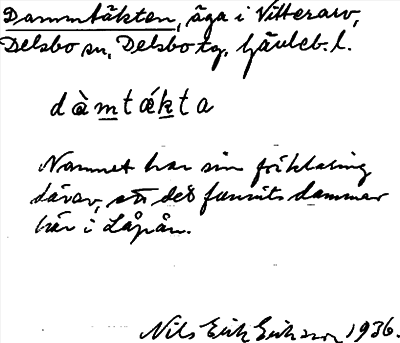 Dammtäkten, äga i Vitterarv,
Delsbo sn, Delsbo tg, Gävleb. l.
dàmtǽkta
Namnet har sin förklaring
därav, att det funnits dammar
här i Låpån.
Nils Erik Eriksson 1936.